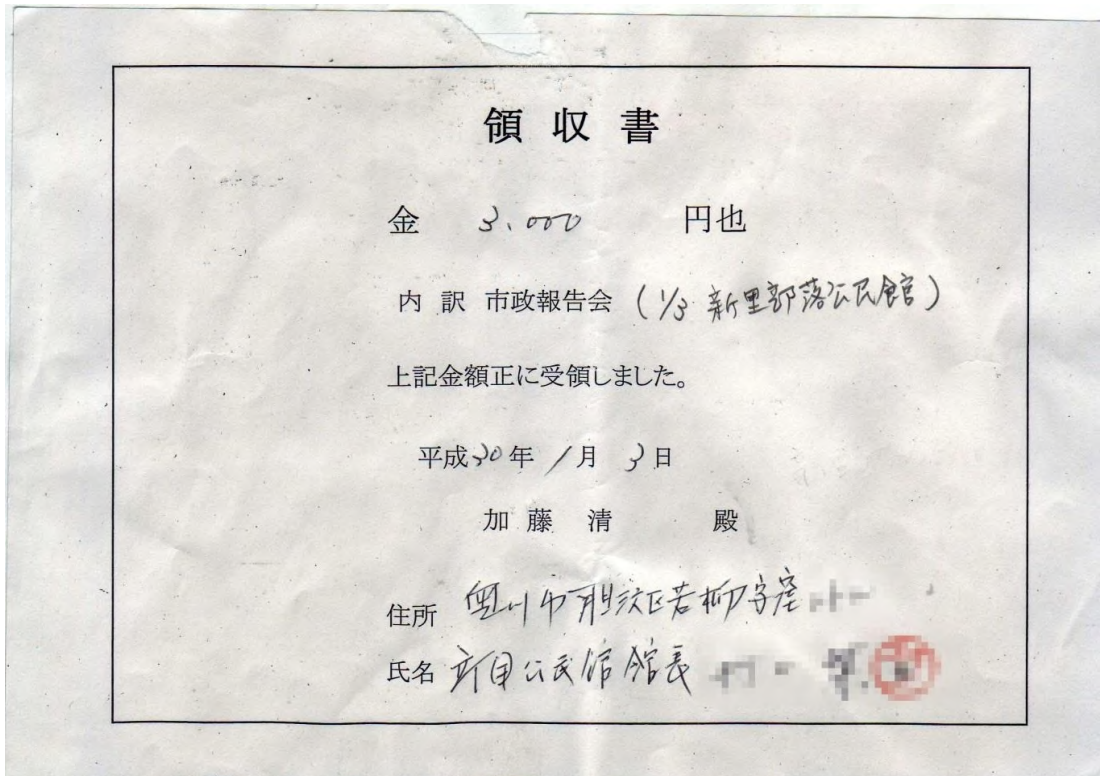 領収書
金 3,000 円也
内訳 市政報告会 (1/3 新里部落公民館)
上記金額正に受領しました。
平成30年 1月 3日
加藤 清 殿
住所 奥州市胆沢区若柳字
氏名 公民館館長